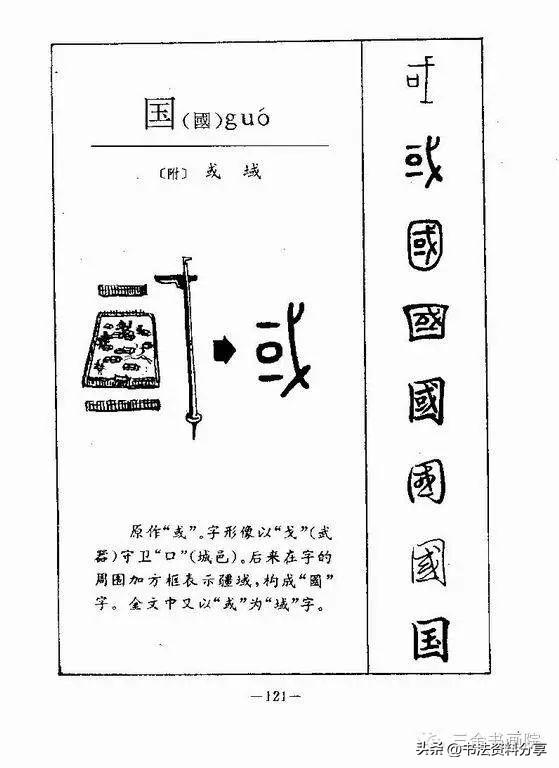 国(國)guó
〔附〕或 域
原作“或”。字形像以“戈”(武
器)守卫“口”(城邑)。后来在字的
周围加方框表示疆域,构成“國”
字。金文中又以“或”为“域”字。
或
或
國
國
國
國
國
国
—121—
三余书画院
头条 @书法资料分享